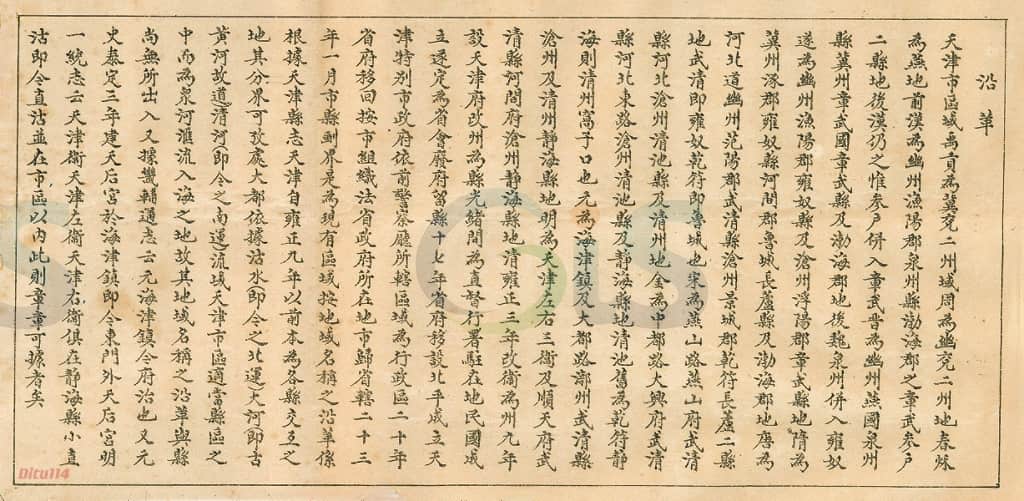 沿革
天津市區域禹貢為冀兗二州域周為幽兗二州地春秋
為燕地前漢為幽州漁陽郡泉州縣渤海郡之章武參戶
二縣地後漢仍之惟參戶併入章武晉為幽州燕國泉州
縣冀州章武國章武縣及渤海郡地後魏泉州併入雍奴
遂為幽州漁陽郡雍奴縣及滄州浮陽郡章武縣地隋為
冀州涿郡雍奴縣河間郡魯城長蘆縣及渤海郡地唐為
河北道幽州范陽郡武清縣滄州景城郡乾符長蘆二縣
地武清即雍奴乾符即魯城也宋為燕山路燕山府武清
縣河北滄州清池縣及清州地金為中都路大興府武清
縣河北東路滄州清池縣及靜海縣地清池舊為乾符靜
海則清州窩子口也元為海津鎮及大都路漷州武清縣
滄州及清州靜海縣地明為天津左右三衛及順天府武
清縣河間府滄州靜海縣地清雍正三年改衛為州九年
設天津府改州為縣光緒間為直督行署駐在地民國成
立遂定為省會廢府留縣十七年省府移設北平成立天
津特別市政府依前警察廳所轄區域為行政區二十年
省府移回按市組織法省政府所在地市歸省轄二十三
年一月市縣劃界是為現有區域按地域名稱之沿革係
根據天津縣志天津自雍正九年以前本為各縣交互之
地其分界可攷處大都依據沽水即今之北運大河即古
黃河故道清河即今之南運流域天津市區適當縣區之
中而為泉河滙流入海之地故其地域名稱之沿革與縣
尚無所出入又據畿輔通志云元海津鎮今府治也又元
史泰定三年建天后宮於海津鎮即今東門外天后宮明
一統志云天津衛天津左衛天津右衛俱在靜海縣小直
沽即今直沽並在市區以內此則章章可據者矣
Ditu114